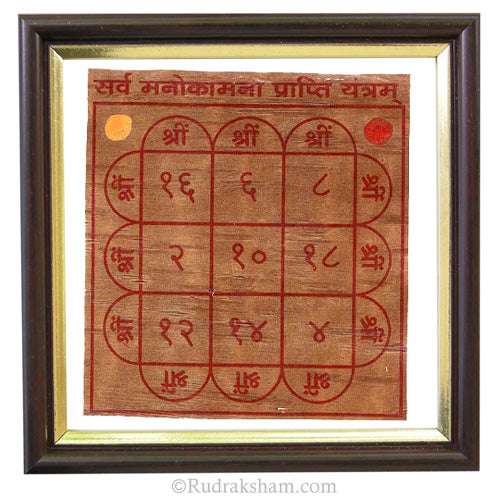 सर्व मनोकामना प्राप्ति यत्रम्
श्रीं श्रीं श्रीं
श्रीं १६ ६ ८ श्रीं
श्रीं २ १० १८ श्रीं
श्रीं १२ १४ ४ श्रीं
श्रीं श्रीं श्रीं
©Rudraksham.com